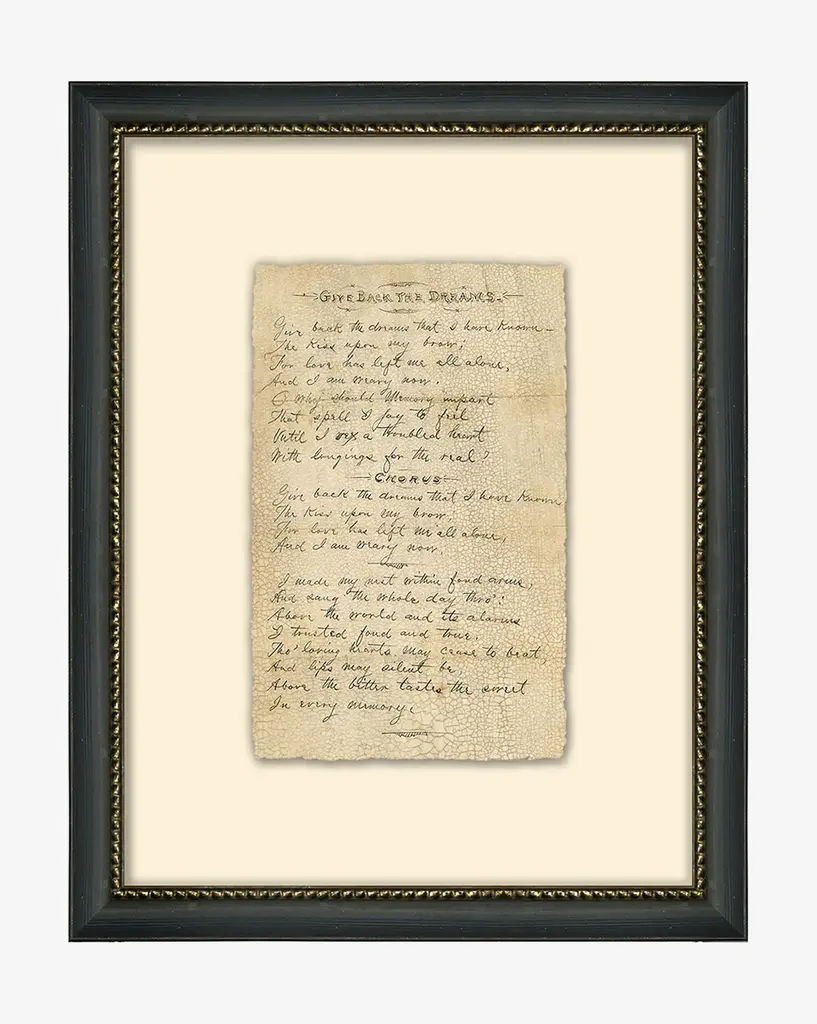 GIVE BACK THE DREAMS.
Give back the dreams that I have known –
The kiss upon my brow;
For love has left me all alone,
And I am weary now.
O why should Memory impart
That spell I say to feel
Until I vex a troubled heart
With longings for the real?
CHORUS
Give back the dreams that I have known
The kiss upon my brow;
For love has left me all alone,
And I am weary now.
I made my nest within fond arms,
And sang the whole day thro':
Above the world and its alarms
I trusted fond and true.
Tho' loving hearts may cease to beat,
And lips may silent be,
Above the bitter tastes the sweet
In every memory.